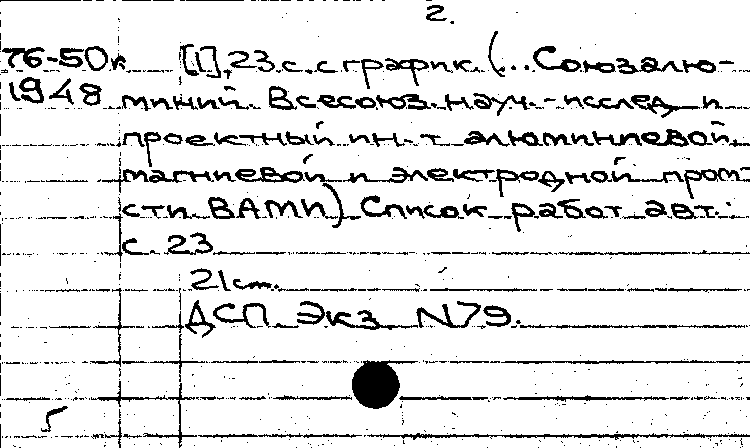 2.
76-50к [1], 23 с. с график. (... Союзалю-
1948 миний. Всесоюз. науч.-исслед. и
проектный ин-т алюминиевой,
магниевой и электродной пром-
сти. ВАМИ) Список работ авт.:
с. 23
21 см.
ДСП Экз N79.
5